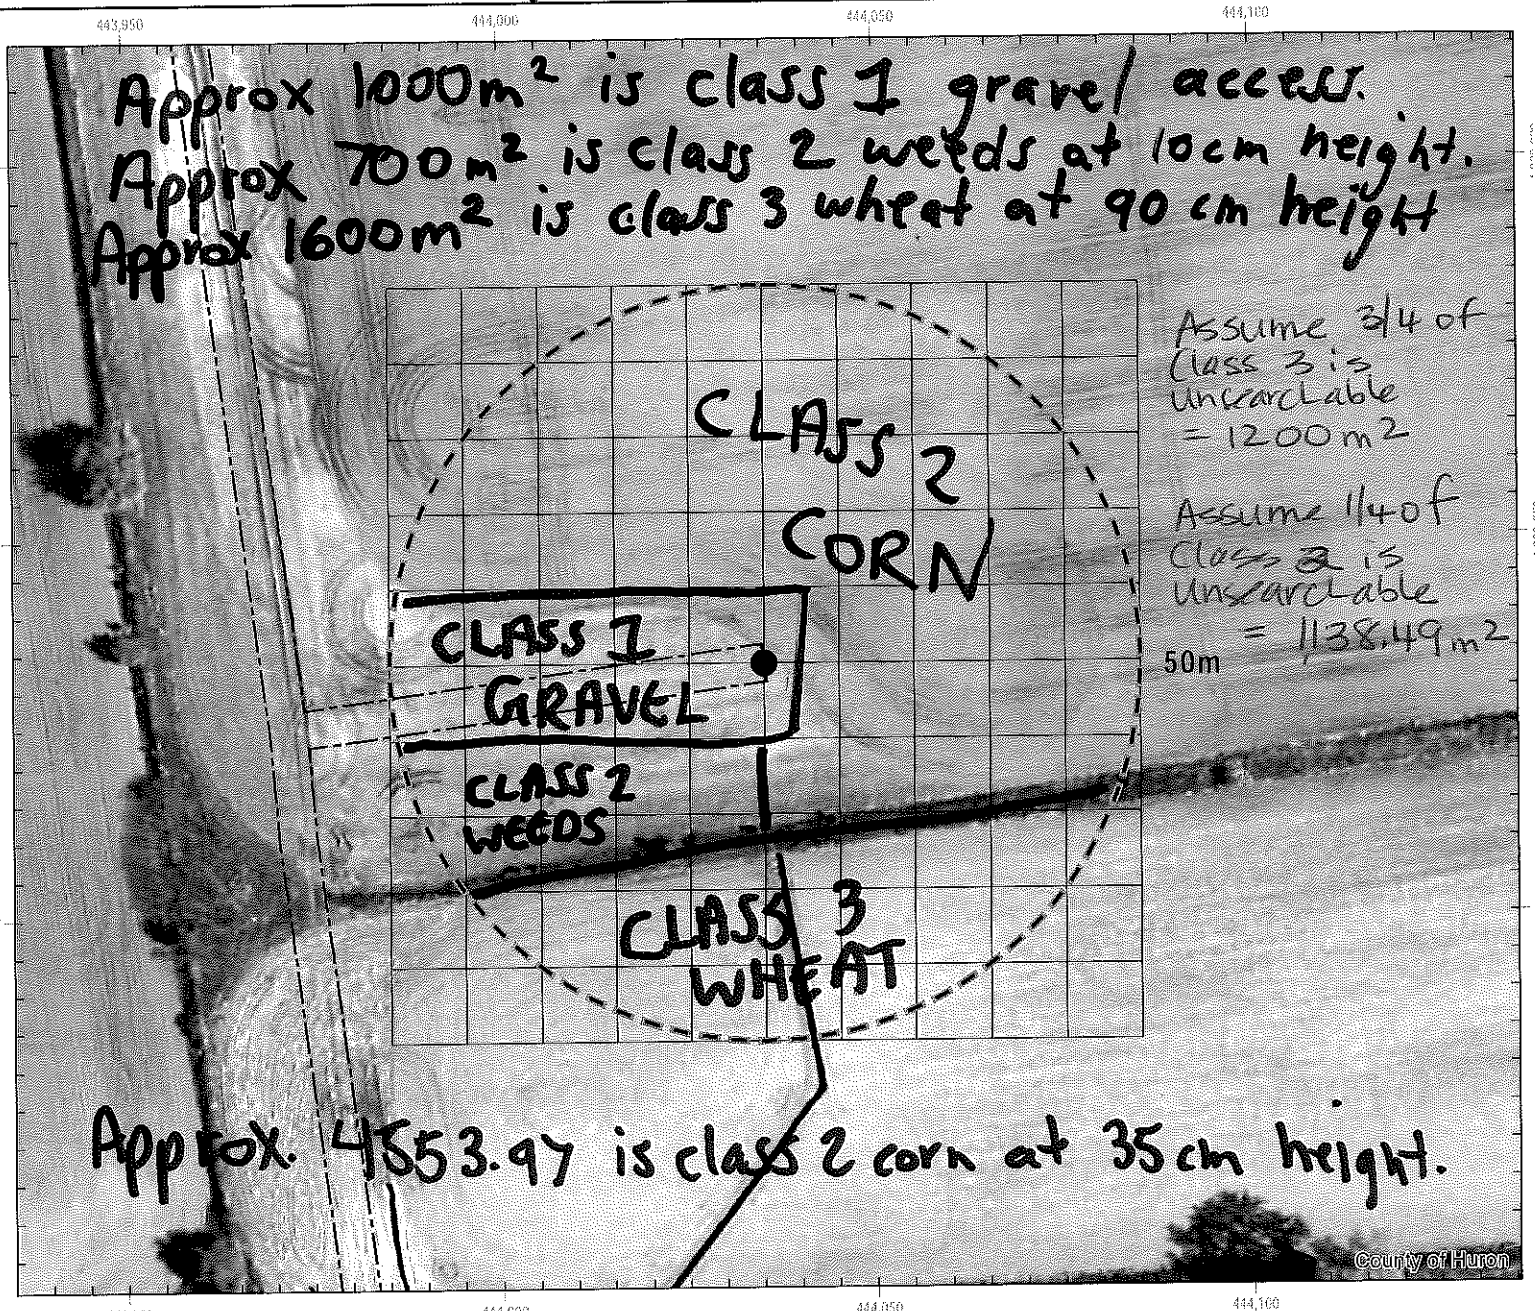 443,950 444,000 444,050 444,100
Approx 1000m² is class 1 gravel access.
Approx 700m² is class 2 weeds at 10cm height.
Approx 1600m² is class 3 wheat at 90 cm height
Assume 3/4 of
Class 3 is
Unsearchable
= 1200 m²
CLASS 2
CORN
Assume 1/4 of
Class 2 is
Unsearchable
= 1138.49 m²
CLASS 1
GRAVEL
50m
CLASS 2
WEEDS
CLASS 3
WHEAT
Approx. 4553.97 is class 2 corn at 35cm height.
County of Huron
444,050 444,100